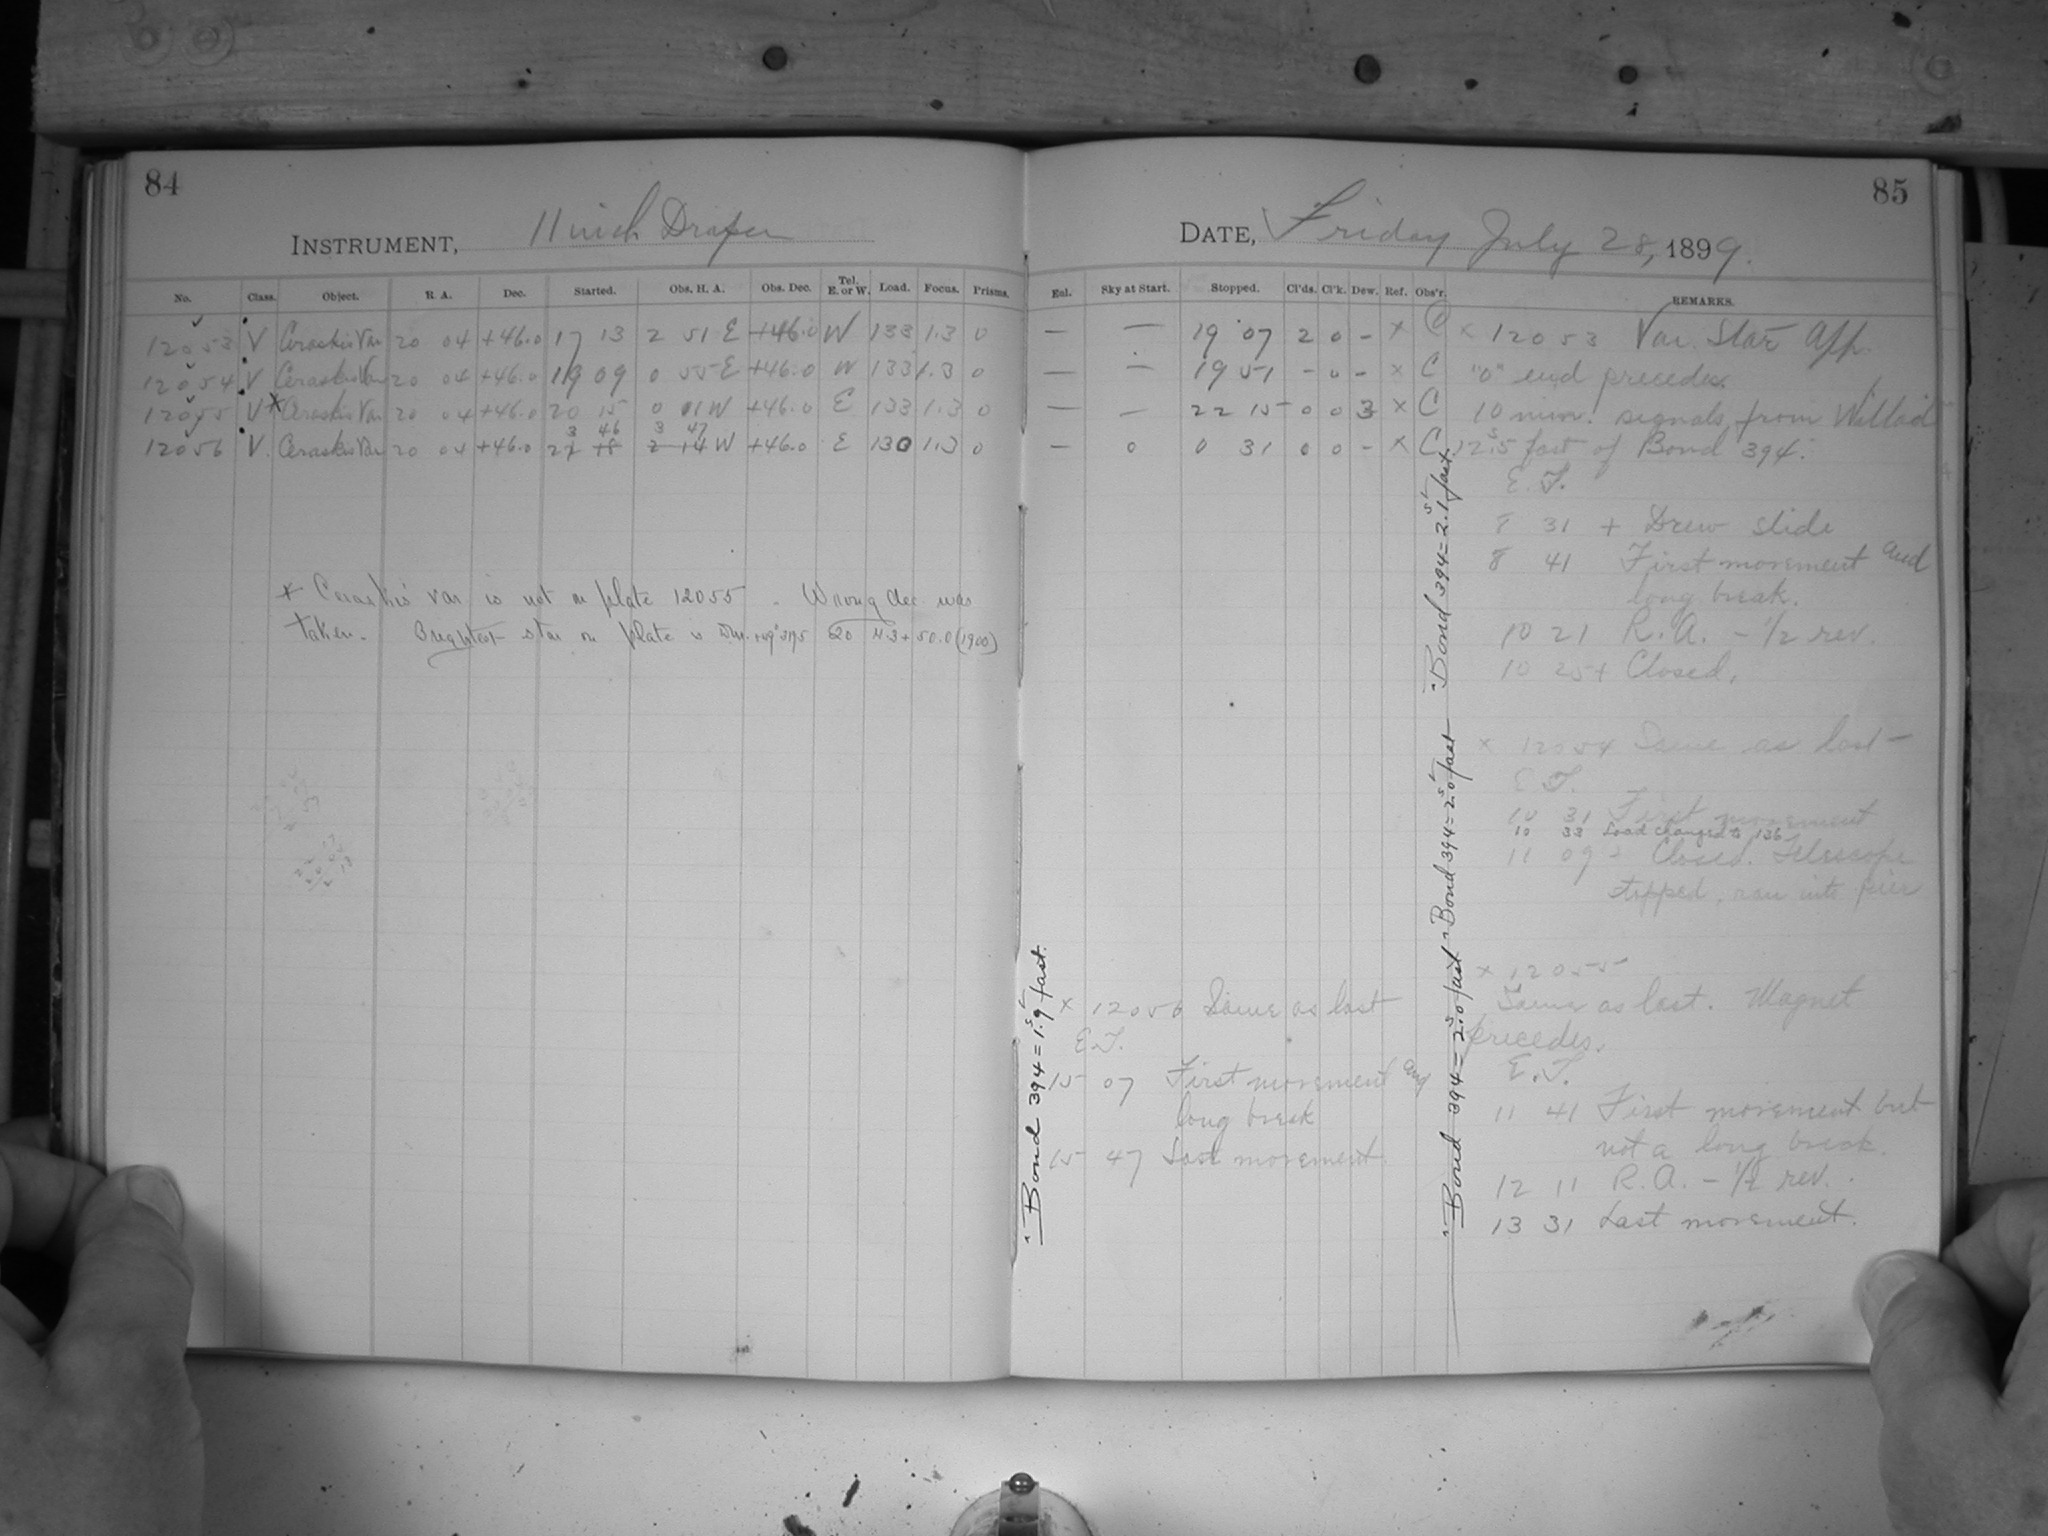 84
INSTRUMENT, 11 inch Draper
No. Class. Object. R. A. Dec. Started. Obs. H. A. Obs. Dec. Tel. E. or W. Load. Focus. Prisms.
12053 V Ceraskis Var 20 04 +46.0 17 13 2 51 E +46.0 W 133 1.3 0
12054 V Ceraskis Var 20 04 +46.0 19 09 0 55 E +46.0 W 133 1.3 0
12055 V * Ceraskis Var 20 04 +46.0 20 15 0 11 W +46.0 E 133 1.3 0
3 46 3 47
12056 V. Ceraskis Var 20 04 +46.0 2 14 W +46.0 E 130 1.3 0
* Ceraskis var. is not on plate 12055. Wrong dec. was
taken. Brightest star on plate is 20 +50.0 (1900)
85
DATE, Friday July 28, 1899.
Enl. Sky at Start. Stopped. Cl'ds. Cl'k. Dew. Ref. Obs'r. REMARKS.
— — 19 07 2 0 - x C
— — 19 51 - 0 - x C
— — 22 15 0 0 3 x C
— 0 0 31 0 0 - x C
x 12053 Var. Star App.
"0" end precedes.
10 min. signals from Willard
12.s5 fast of Bond 394.
E. T.
8 31 + Drew slide
8 41 First movement and
long break.
10 21 R. A. - 1/2 rev.
10 25+ Closed.
x 12054 Same as last
E. T.
10 31 First movement
10 33 Load changed to 136
11 09 - Closed. Telescope
stopped, ran into pier
x 12055
Same as last. Magnet
precedes.
E. T.
11 41 First movement but
not a long break.
12 11 R. A. - 1/2 rev.
13 31 Last movement.
x 12056 Same as last
E. T.
15 07 First movement and
long break
15 47 Last movement
Bond 394 = 1.s9 fast.
Bond 394 = 2.s0 fast
Bond 394 = 2.s0 fast
Bond 394 = 2.s1 fast.